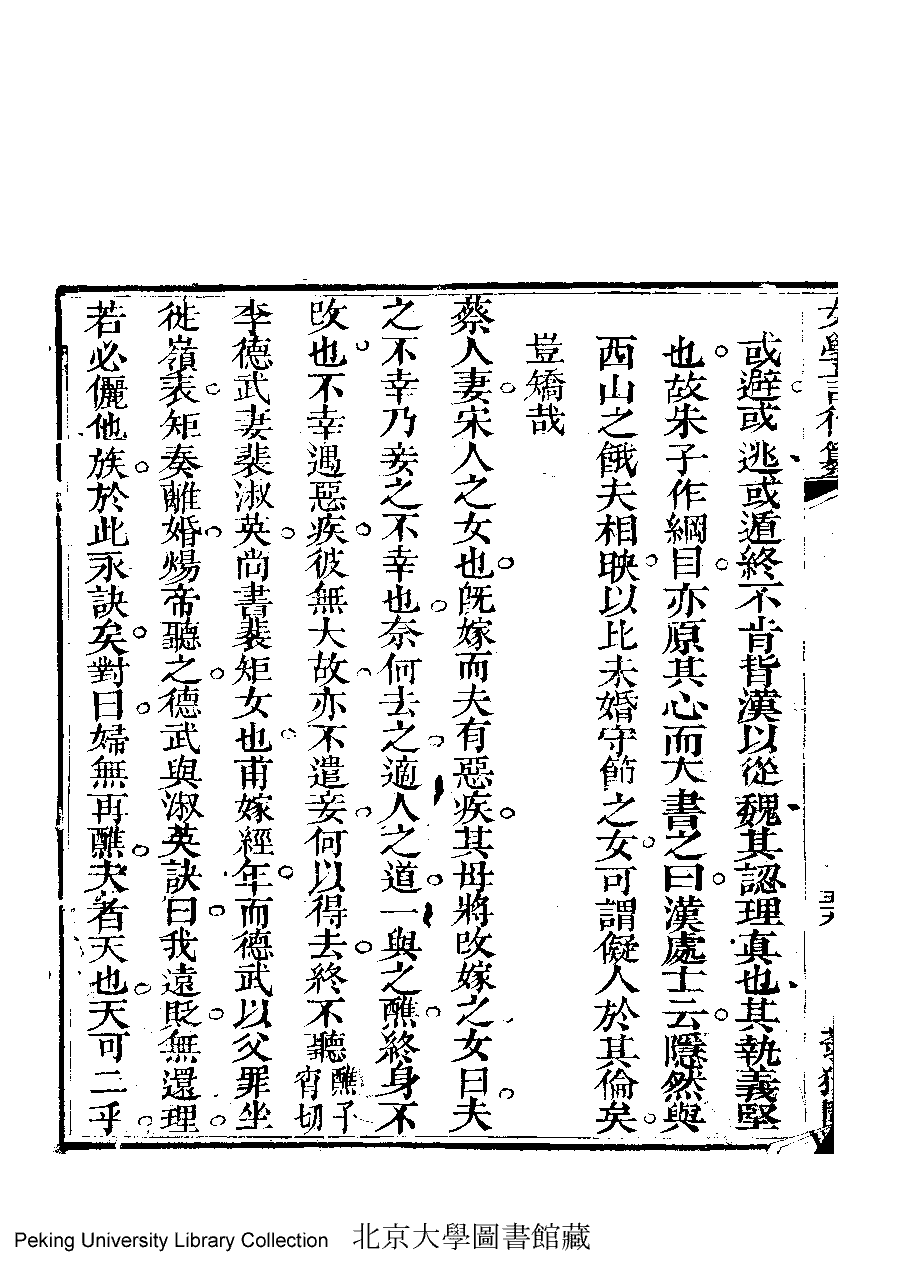 女學言行纂
或避或逃或遁終不肯背漢以從魏其認理真也其執義堅
也故朱子作綱目亦原其心而大書之曰漢處士云隱然與
西山之餓夫相映以比未婚守節之女可謂儗人於其倫矣
豈矯哉
蔡人妻宋人之女也旣嫁而夫有惡疾其母將改嫁之女曰夫
之不幸乃妾之不幸也奈何去之適人之道一與之醮終身不
改也不幸遇惡疾彼無大故亦不遣妾何以得去終不聽醮子宵切
李德武妻裴淑英尚書裴矩女也甫嫁經年而德武以父罪坐
徙嶺表矩奏離婚煬帝聽之德武與淑英訣曰我遠貶無還理
若必儷他族於此永訣矣對曰婦無再醮夫者天也天可二乎
Peking University Library Collection 北京大學圖書館藏